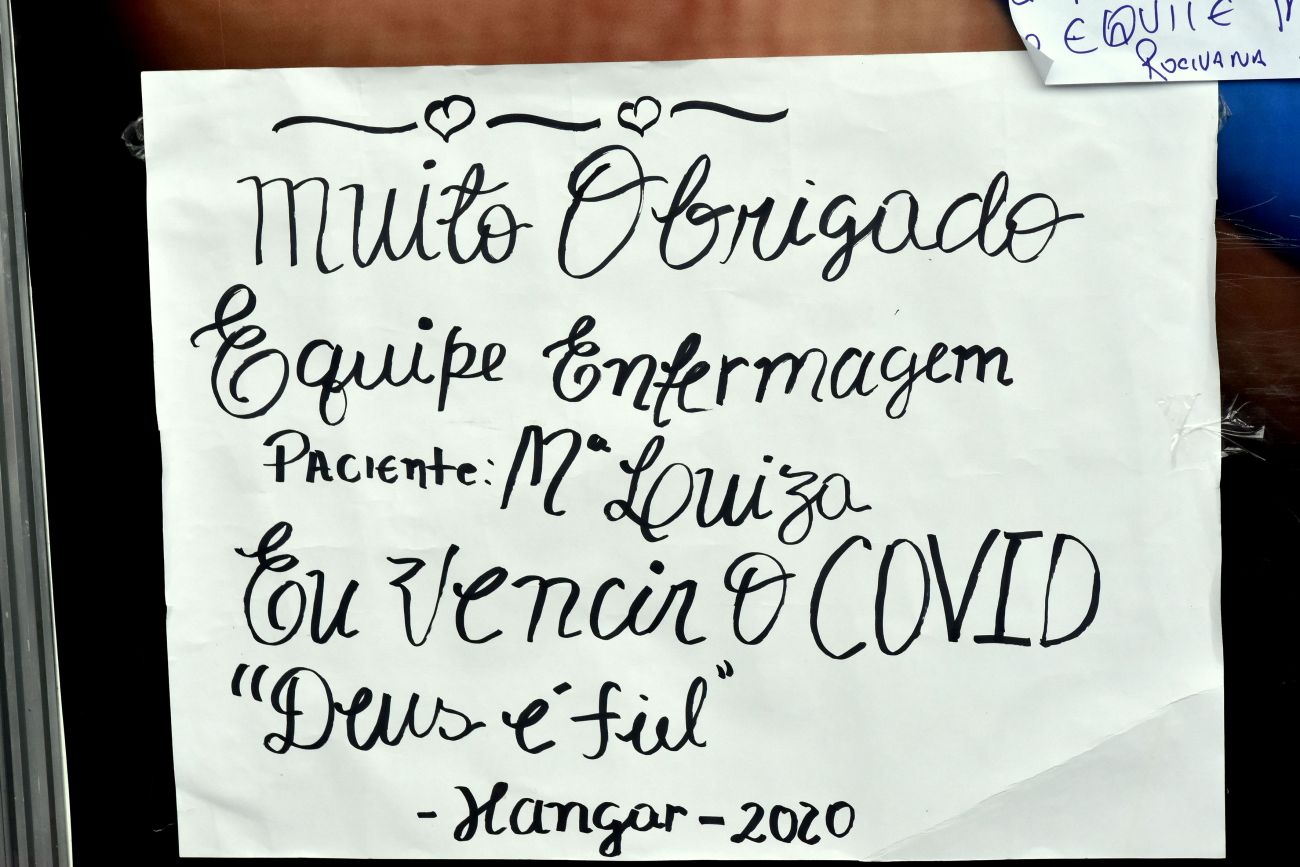 EQUIPE
ROCIVANA
Muito Obrigado
Equipe Enfermagem
Paciente: Mª Louiza
Eu Vencir O COVID
"Deus é fiel"
- Hangar - 2020